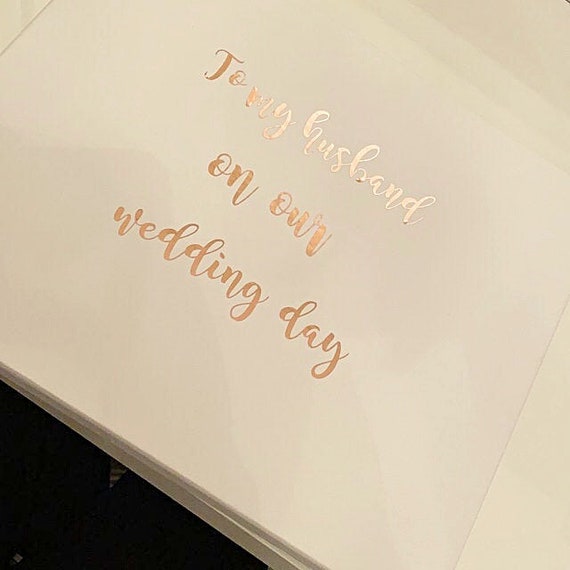 To my husband
on our
wedding day